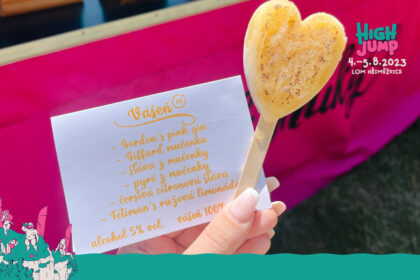 HIGH
JUMP
4.–5.8.2023
LOM HŘIMĚŽDICE
Vášeň
- Gordon's pink gin
- Giffard mučenka
- šťáva z mučenky
- pyré z mučenky
- čerstvá citronová šťáva
- Fentiman's růžová limonáda
alcohol 5% vol. vášeň 100%